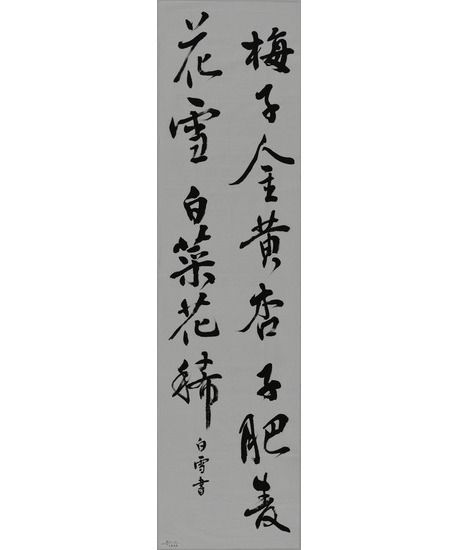 梅子金黄杏子肥麦
花雪白菜花稀
白雪书